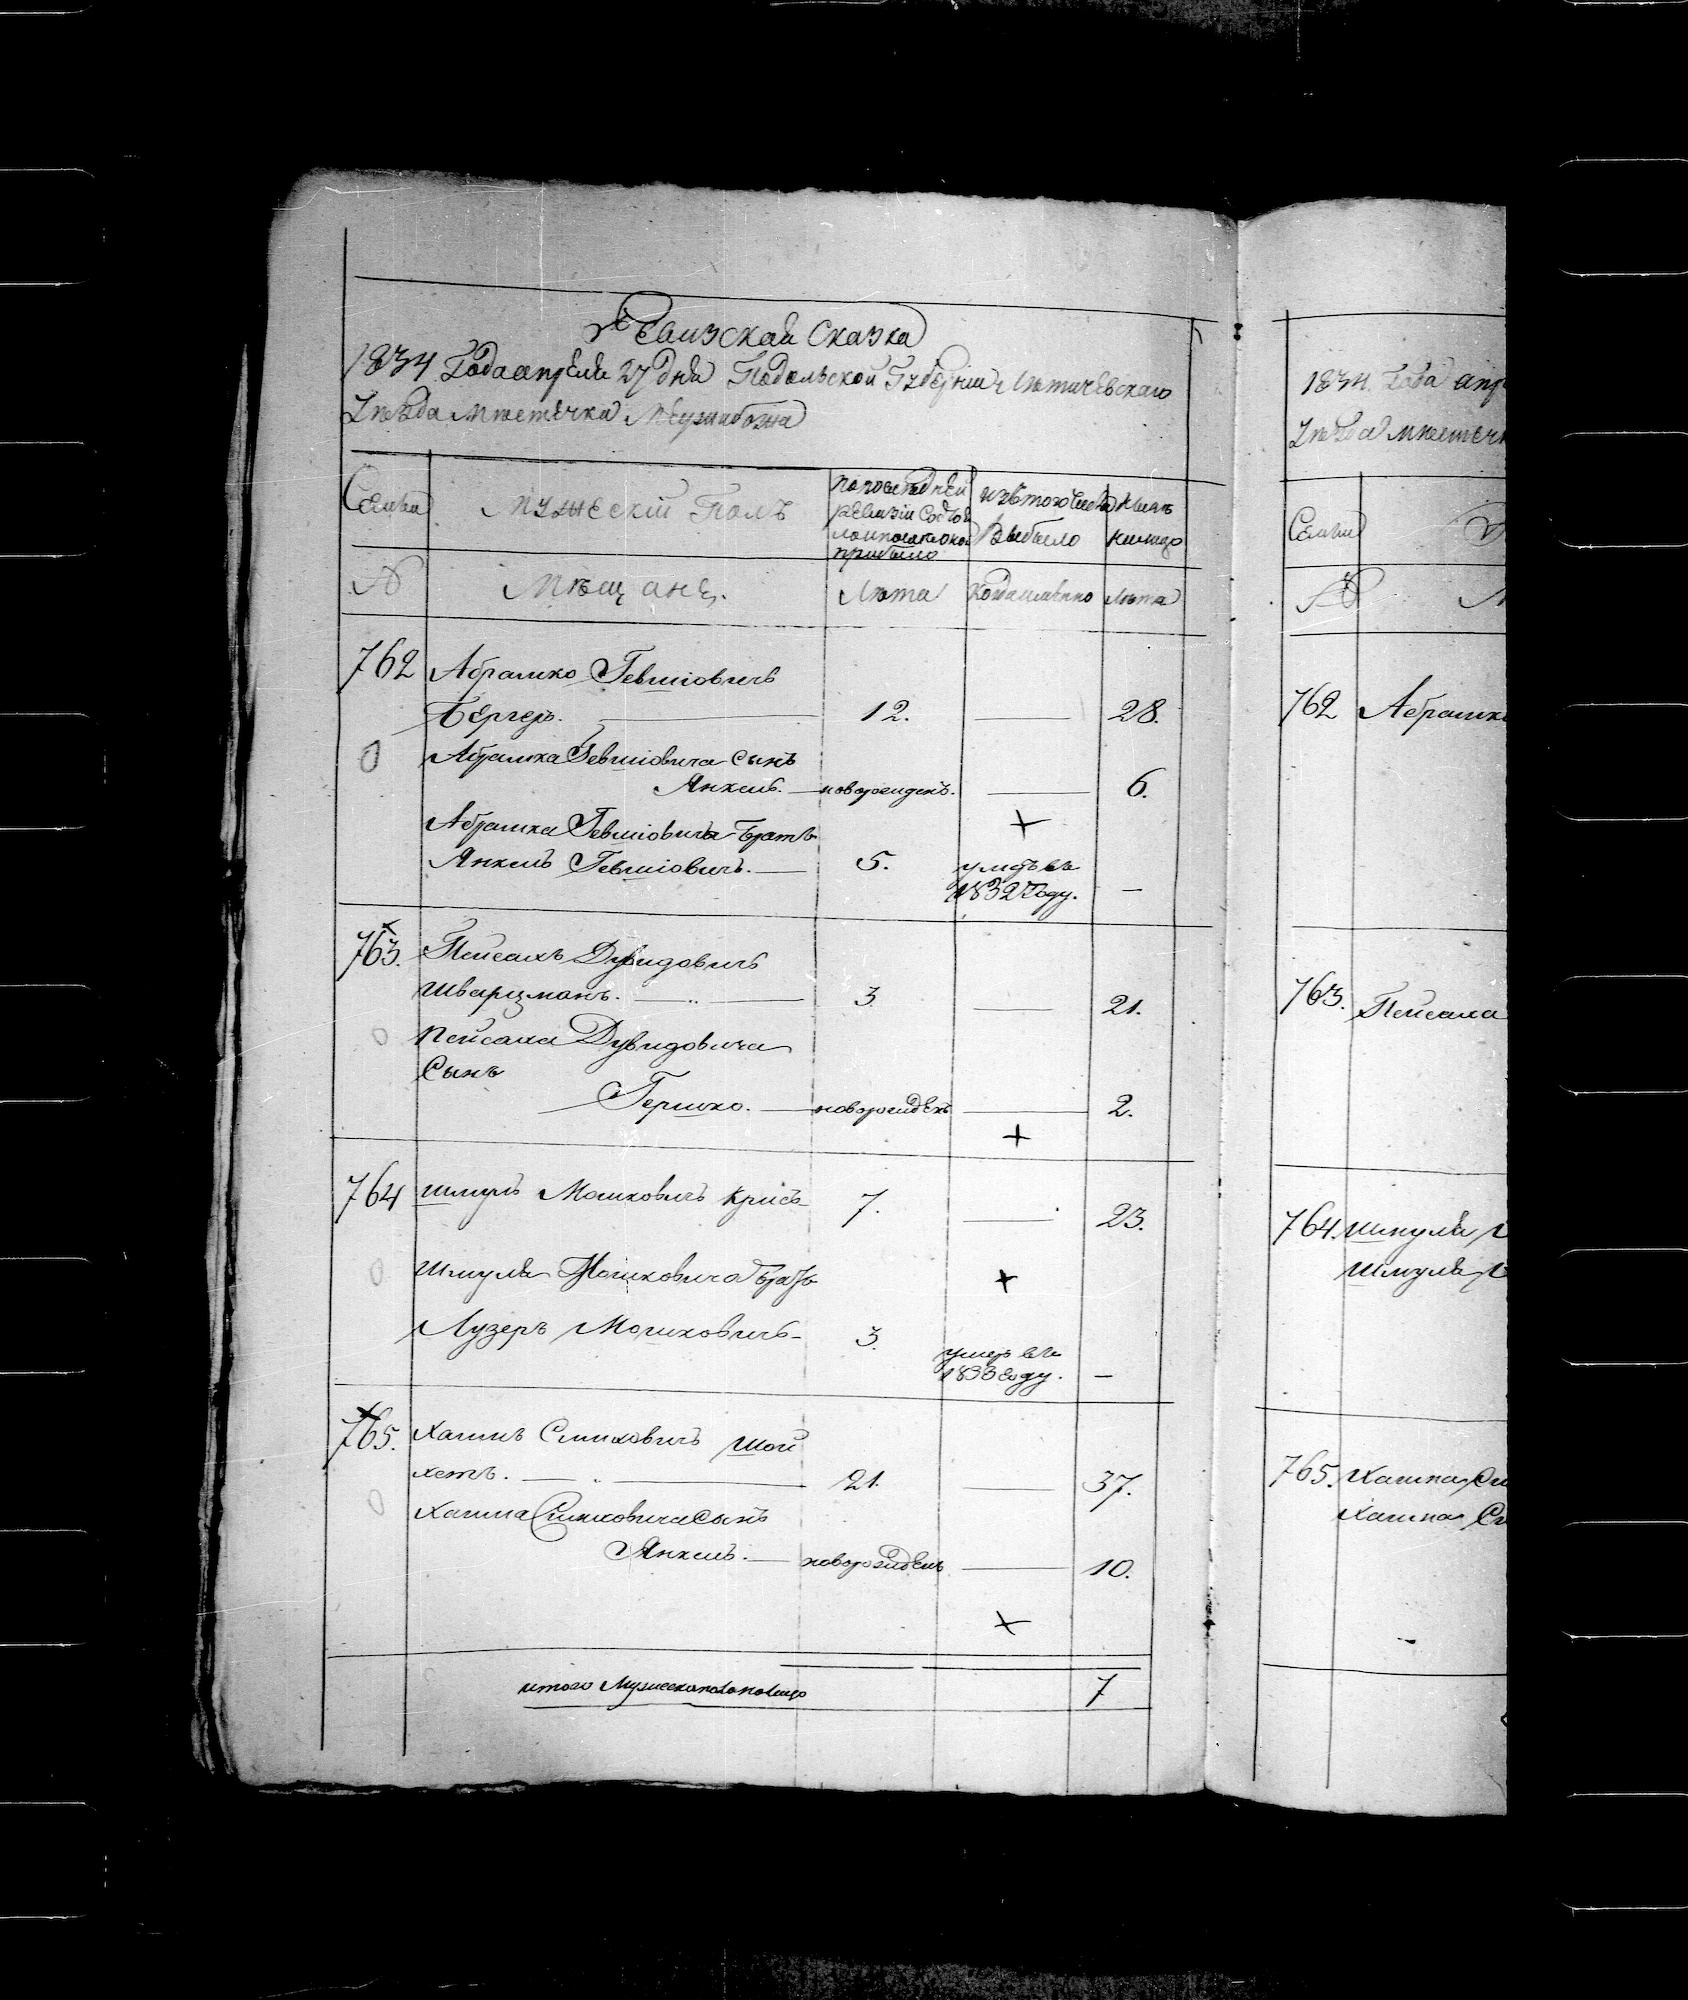 Ревизская Сказка
1834 Года апреля 27 дня Подольской Губерніи Летичевскаго
Уѣзда Мѣстечка Межибожа
Семьи
Мужескій Полъ
по последней ревизіи состояло и после оной прибыло
изъ того числа Выбыло
Нынѣ на лицо
№
Мѣщане.
Лѣта
Когда именно
Лѣта
762 Абрамко Гевшіовичъ
Бергеръ. 12. 28.
Абрамка Гевшіовича сынъ
Янкель. новорожденъ. 6.
Абрамка Гевшіовича братъ
Янкель Гевшіовичъ. 5. умеръ въ
1832 Году. —
763. Пейсахъ Дувидовичъ
Шварцманъ. 3. 21.
Пейсаха Дувидовича
Сынъ
Гершко. новорожденъ 2.
764 Шмуль Мошковичъ Крисъ 7. 23.
Шмуля Мошковича братъ
Лузеръ Мошковичъ 3. умеръ въ
1833 Году. —
765. Хаимъ Симховичъ Шой
хетъ. 21. 37.
Хаима Симховича сынъ
Янкель. новорожденъ 10.
итого Мужеска пола на лицо 7
1834. Года апр
Уѣзда мѣстечк
Семьи
№
762 Абрамк
763. Пейсаха
764. Шмуля
Шмуля
765. Хаима Си
Хаима Си